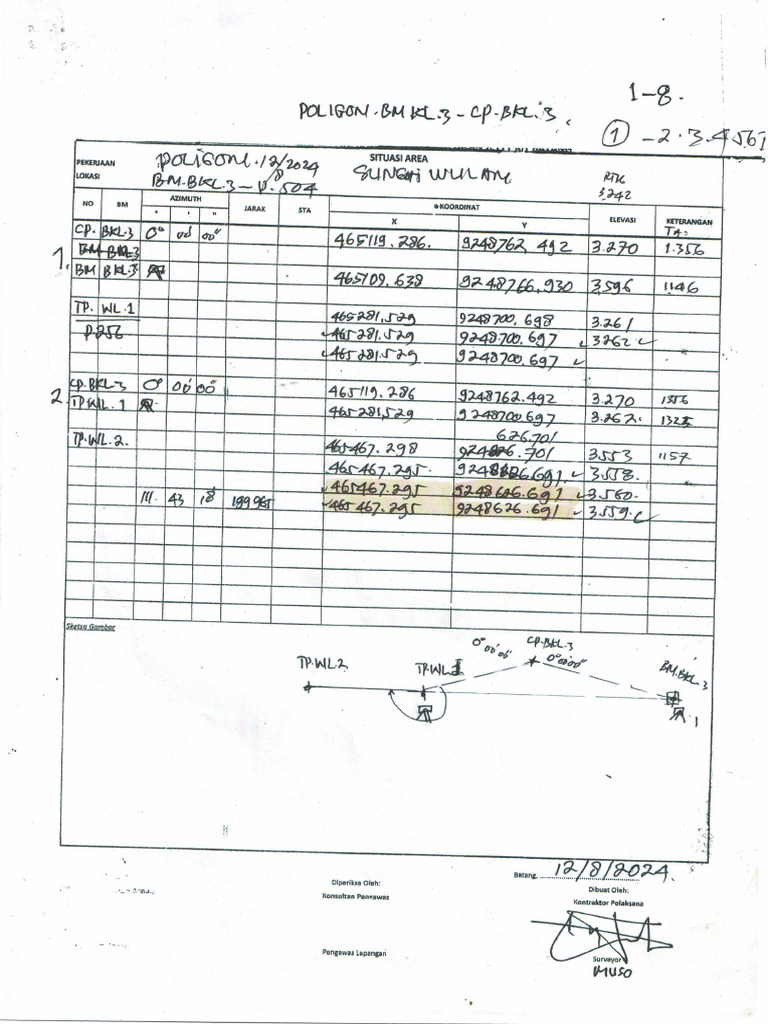 1-8.
POLIGON.BMKL.3 - CP.BKL.3
① - 2.3.4.5.6.7
PEKERJAAN POLIGON.12/8/2024 SITUASI AREA
LOKASI BM.BKL.3 - P.504 SUNGAI WULAN RTK 3.242
NO BM AZIMUTH JARAK STA KOORDINAT ELEVASI KETERANGAN
° ' " X Y TA=
CP. BKL.3 0° 00' 00" 465119.286. 9248762.492 3.270 1.356
1. BM BKL.3
BM BKL.3 465109.638 9248766.930 3.596 1146
TP. WL.1 465281,529 9248700.698 3.261
P.256 465281.529 9248700.697 3.262
465281.529 9248700.697
2. CP.BKL-3 0° 00' 00" 465119.286 9248762.492 3.270 1356
TP.WL.1 465281,529 9248700.697 3.262.
626.701
TP.WL.2. 465467.298 3.553 1157
465467.295. 3.558.
465467.295 9248626.691 3.560
111. 43 18 199965 465467.295 9248626.691 3.559
Sketsa Gambar
0° 00' 00" CP.BKL.3
TP.WL.2 0°00'00" BM.BKL.3
1
Batang, 12/8/2024.
Diperiksa Oleh: Dibuat Oleh:
Konsultan Pengawas Kontraktor Pelaksana
Pengawas Lapangan Surveyor
MUSO